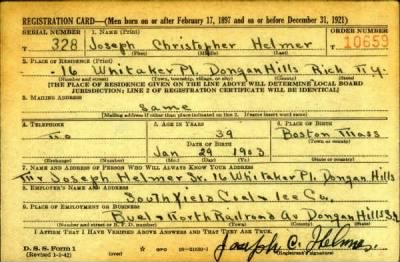 REGISTRATION CARD—(Men born on or after February 17, 1897 and on or before December 31, 1921)
SERIAL NUMBER 1. NAME (Print) ORDER NUMBER
T 328 Joseph Christopher Helmer 10659
(First) (Middle) (Last)
2. PLACE OF RESIDENCE (Print)
16 Whitaker Pl. Dongan Hills Rich N.Y.
(Number and street) (Town, township, village, or city) (County) (State)
[THE PLACE OF RESIDENCE GIVEN ON THE LINE ABOVE WILL DETERMINE LOCAL BOARD
JURISDICTION; LINE 2 OF REGISTRATION CERTIFICATE WILL BE IDENTICAL]
3. MAILING ADDRESS
Same
(Mailing address if other than place indicated on line 2. If same insert word same)
4. TELEPHONE 5. AGE IN YEARS 6. PLACE OF BIRTH
no 39 Boston Mass
DATE OF BIRTH (Town or county)
Jan 29 1903
(Exchange) (Number) (Mo.) (Day) (Yr.) (State or country)
7. NAME AND ADDRESS OF PERSON WHO WILL ALWAYS KNOW YOUR ADDRESS
Joseph Helmer Sr. 16 Whitaker Pl. Dongan Hills
8. EMPLOYER'S NAME AND ADDRESS
Southfield Coal + Ice Co.
9. PLACE OF EMPLOYMENT OR BUSINESS
Buel + North Railroad Av Dongan Hills S.I.
(Number and street or R. F. D. number) (Town) (County) (State)
I AFFIRM THAT I HAVE VERIFIED ABOVE ANSWERS AND THAT THEY ARE TRUE.
D. S. S. Form 1
(Revised 1-1-42) GPO 16-21630-1
Joseph C. Helmer
(Registrant's signature)